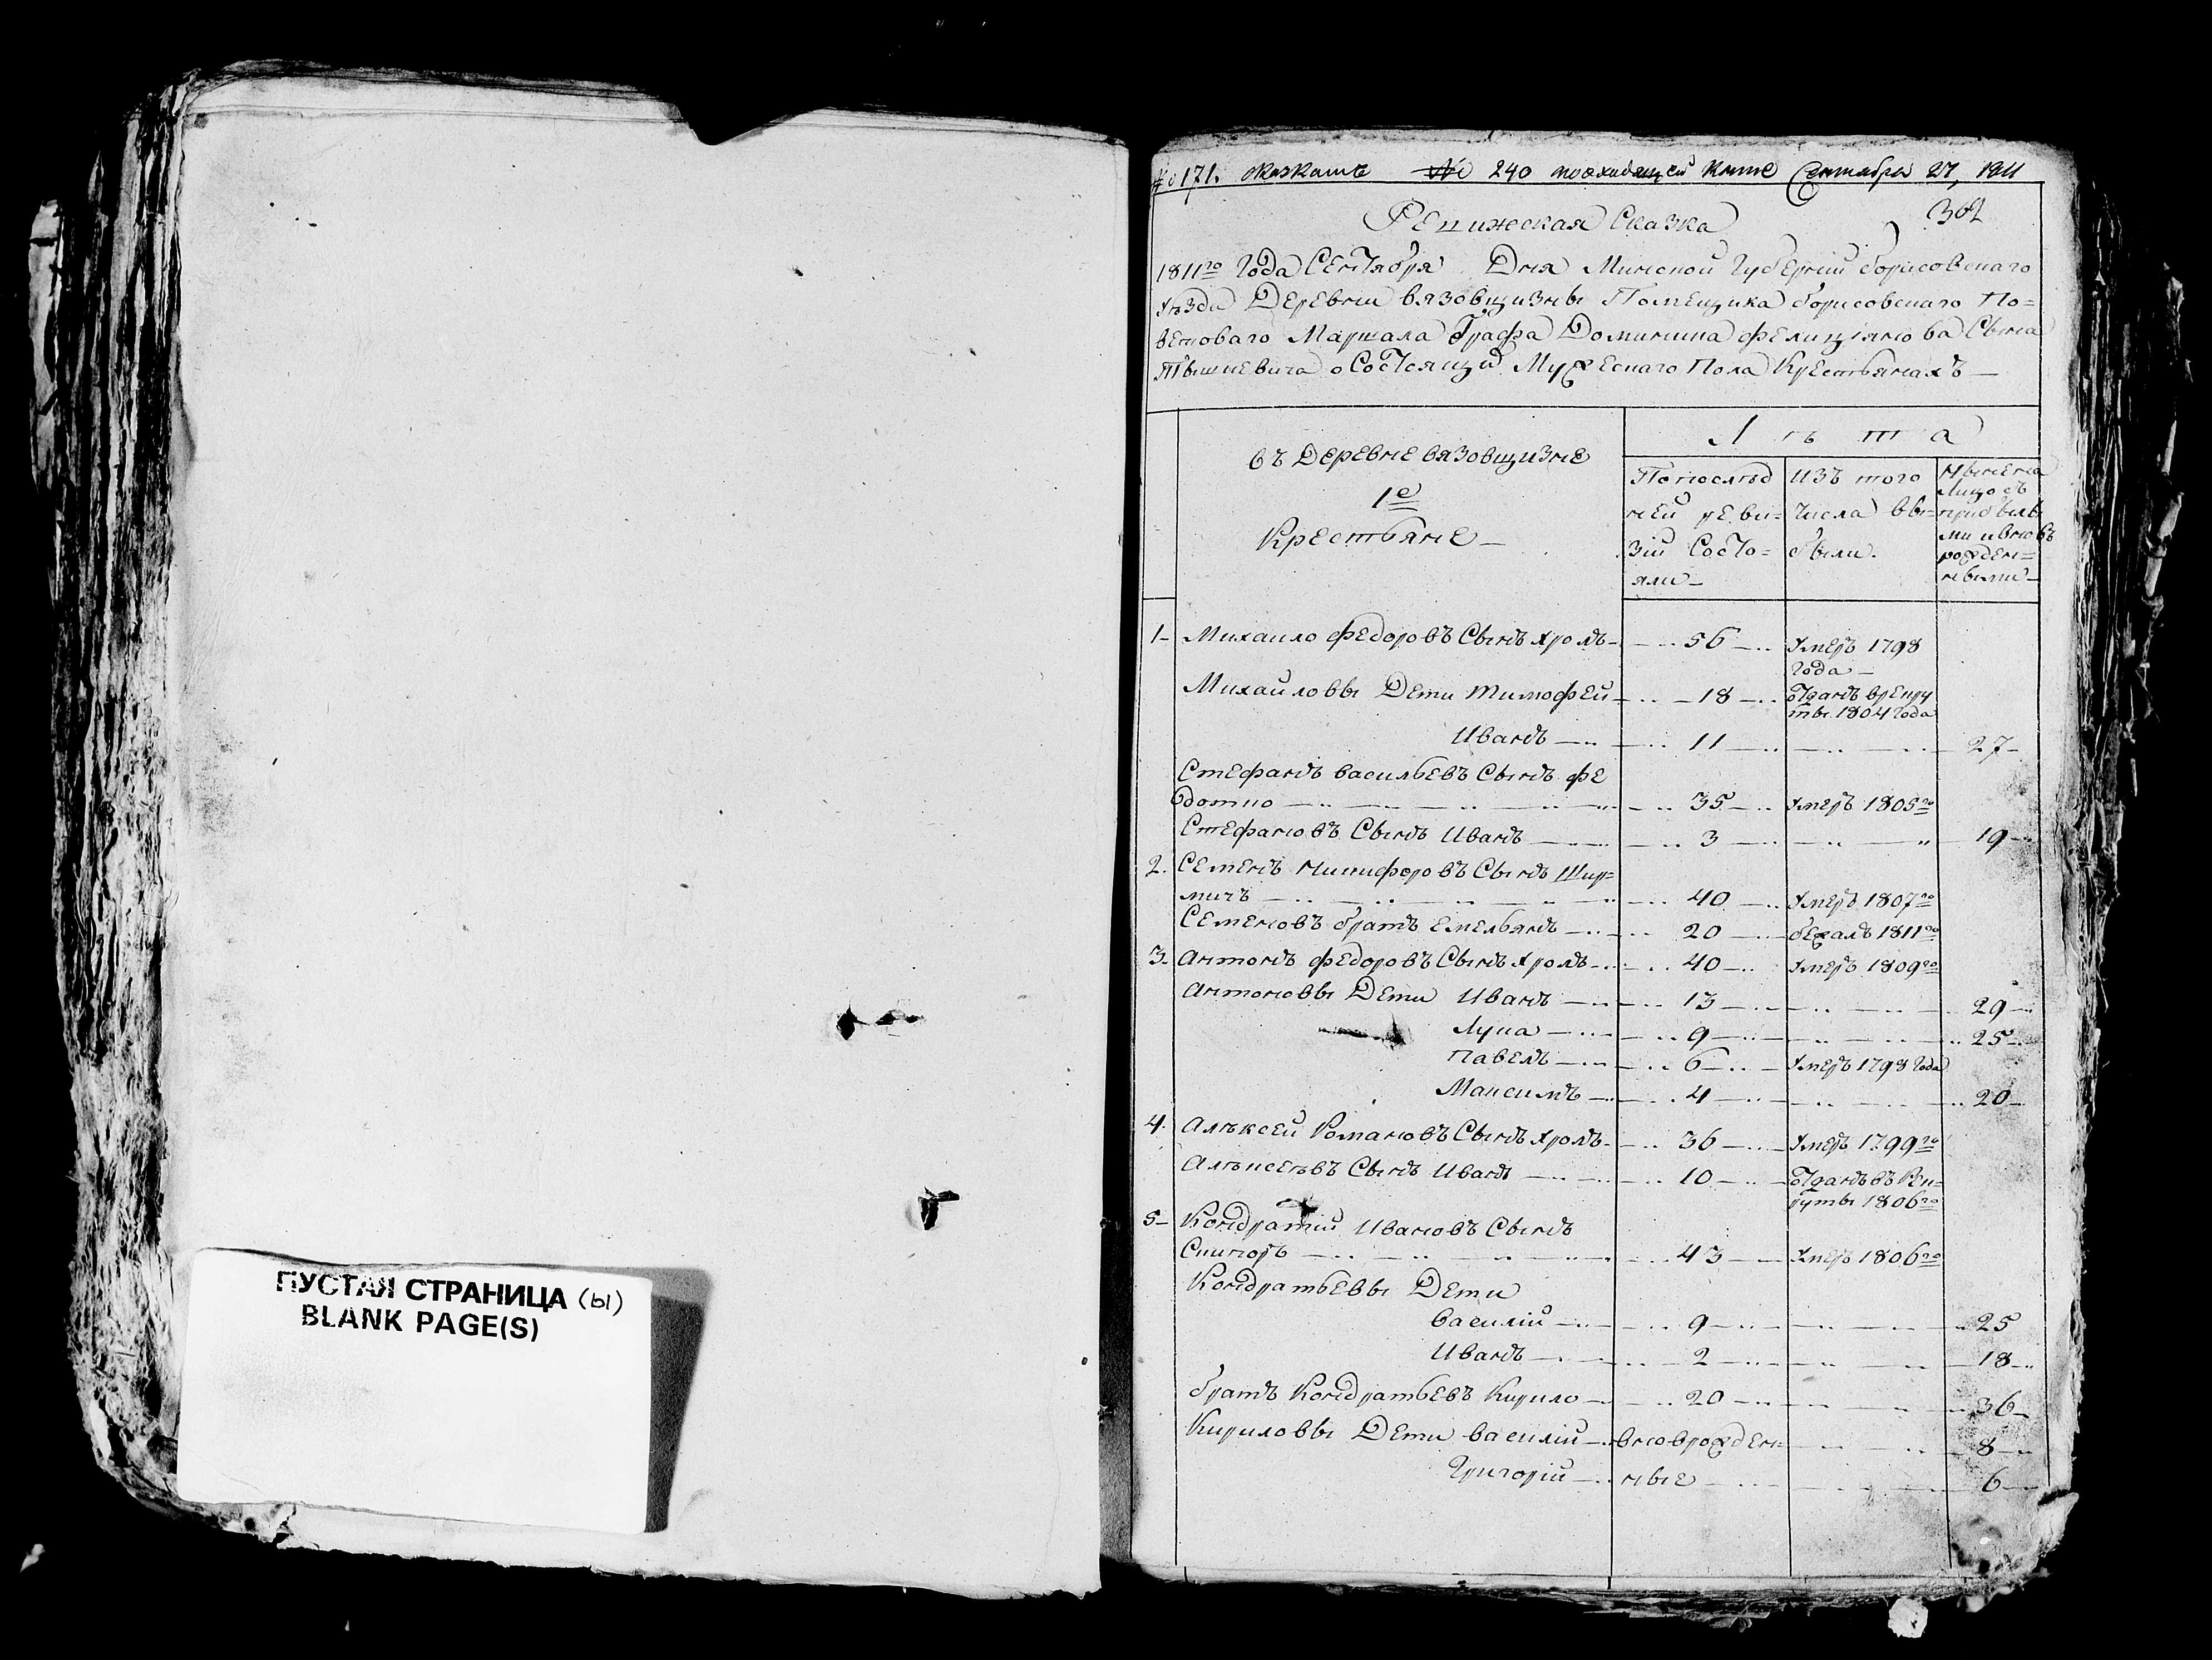 ПУСТАЯ СТРАНИЦА (ы)
BLANK PAGE(S)
№ 171. № 240 Сентября 27, 1811
302
Ревижская Сказка
1811го Года Сентября Дня Минской Губерніи Борисовскаго
уѣзда Деревни Вязовщизны Помещика Борисовскаго По=
ветоваго Маршала Графа Доминика Фелиціянова Сына
Тышкевича о Состоящих Мужескаго Пола Крестьянахъ —
Лѣта
Въ Деревне Вязовщизне
1е
Крестьяне —
Попослѣд
ней реви=
зіи Состо=
яли —
Изъ того
Числа Вы=
были.
Ныне на
лицо съ
прибылы
ми и вновь
рожден=
ными —
1 — Михаило Федоровъ Сынъ Хромъ — 56 — умеръ 1798
Года —
Михайловы Дети Тимофей — 18 — Отданъ врекру
ты 1804 Года
Иванъ — 11 — 27 —
Стефанъ Васильевъ Сынъ Фе
дотко — 35 — умеръ 1805го
Стефановъ Сынъ Иванъ — 3 — 19 —
2. Семенъ Никифоровъ Сынъ Шир=
мичъ — 40 — умеръ 1807го
Семеновъ братъ Емельянъ — 20 — бежалъ 1811го
3. Антонъ Федоровъ Сынъ Хромъ — 40 — умеръ 1809го
Антоновы Дети Иванъ — 13 — 29 —
Лука — 9 — 25 —
Павелъ — 6 — умеръ 1798 Года
Максимъ — 4 — 20 —
4. Алѣксей Романовъ Сынъ Хромъ — 36 — умеръ 1799го
Алѣксеевъ Сынъ Иванъ — 10 — Отданъ въ Рек=
руты 1806го
5 — Кондратій Ивановъ Сынъ
— 43 — умеръ 1806го
Кондратьевы Дети
Василій — 9 — 25
Иванъ — 2 — 18 —
братъ Кондратьевъ Кирило — 20 — 36 —
Кириловы Дети Василій — вноврожден= — 8 —
Григорій — ные — 6 —